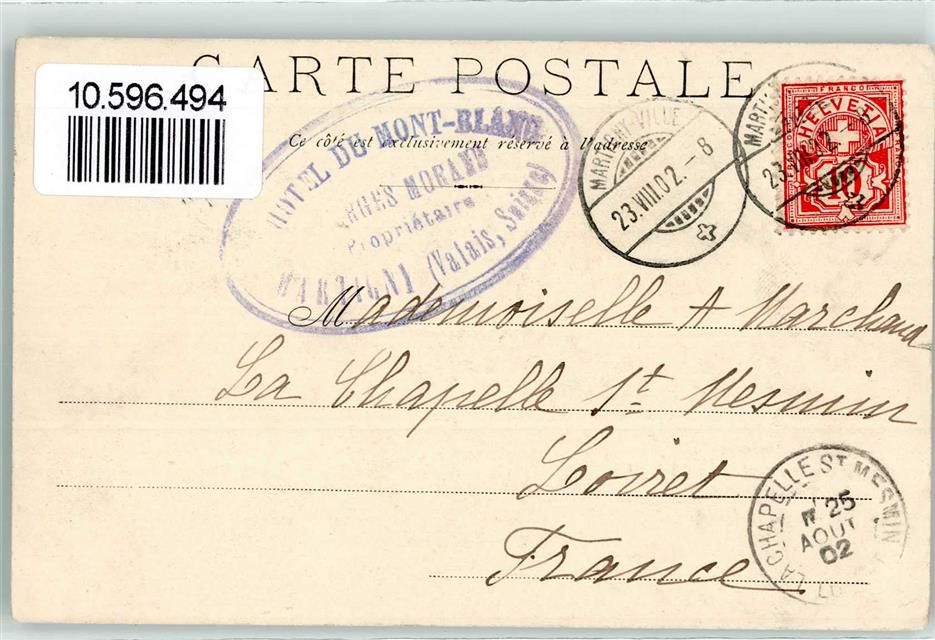 CARTE POSTALE
10.596.494
Ce côté est exclusivement réservé à l'adresse
HOTEL DU MONT-BLANC
GEORGES MORAND
Propriétaire
MARTIGNY (Valais, Suisse)
MARTIGNY-VILLE
23.VIII.02.-8
MARTIGNY
23.VIII.02.
FRANCO
HELVETIA
10
Mademoiselle A Marchand
La Chapelle St. Mesmin
Loiret
France
LA CHAPELLE ST MESMIN
25
AOUT
02